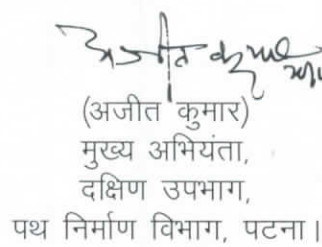 अजीत कुमार
(अजीत कुमार)
मुख्य अभियंता,
दक्षिण उपभाग,
पथ निर्माण विभाग, पटना।